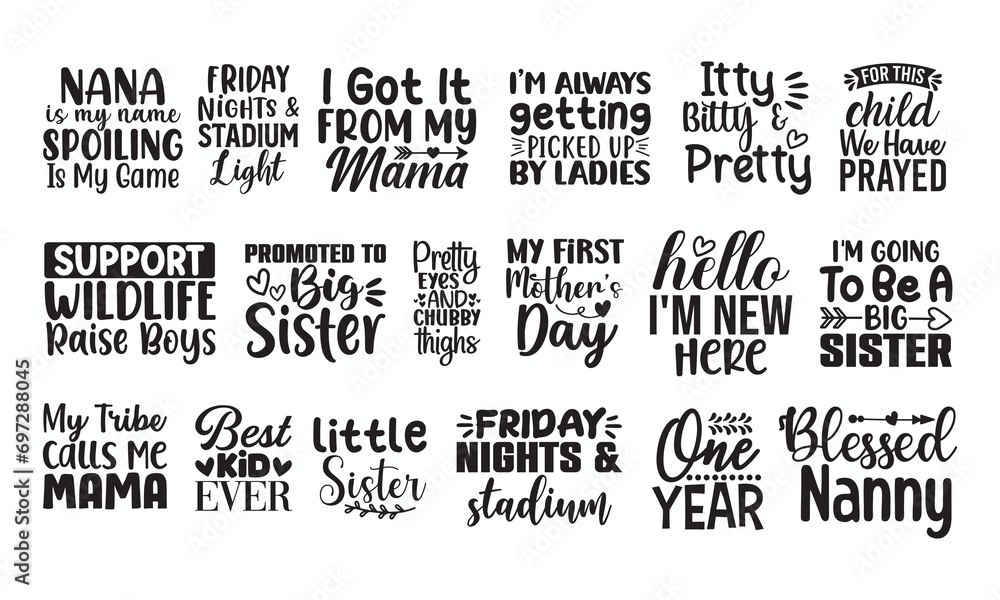 NANA
is my name
SPOILING
Is My Game
FRIDAY
NiGHTS &
STADIUM
Light
I Got It
FROM MY
Mama
I'M ALWAYS
getting
PICKED UP
BY LADIES
Itty
Bitty &
Pretty
FOR THIS
child
We Have
PRAYED
SUPPORT
WILDLIFE
Raise Boys
PROMOTED TO
Big
Sister
Pretty
EYES
AND
CHUBBY
thighs
MY FiRST
Mother's
Day
hello
I'M NEW
HERE
I'M GOING
To Be A
BIG
SISTER
My Tribe
CALLS ME
MAMA
Best
KiD
EVER
little
Sister
FRIDAY
NIGHTS &
stadium
One
YEAR
Blessed
Nanny
Adobe Stock | #697288045